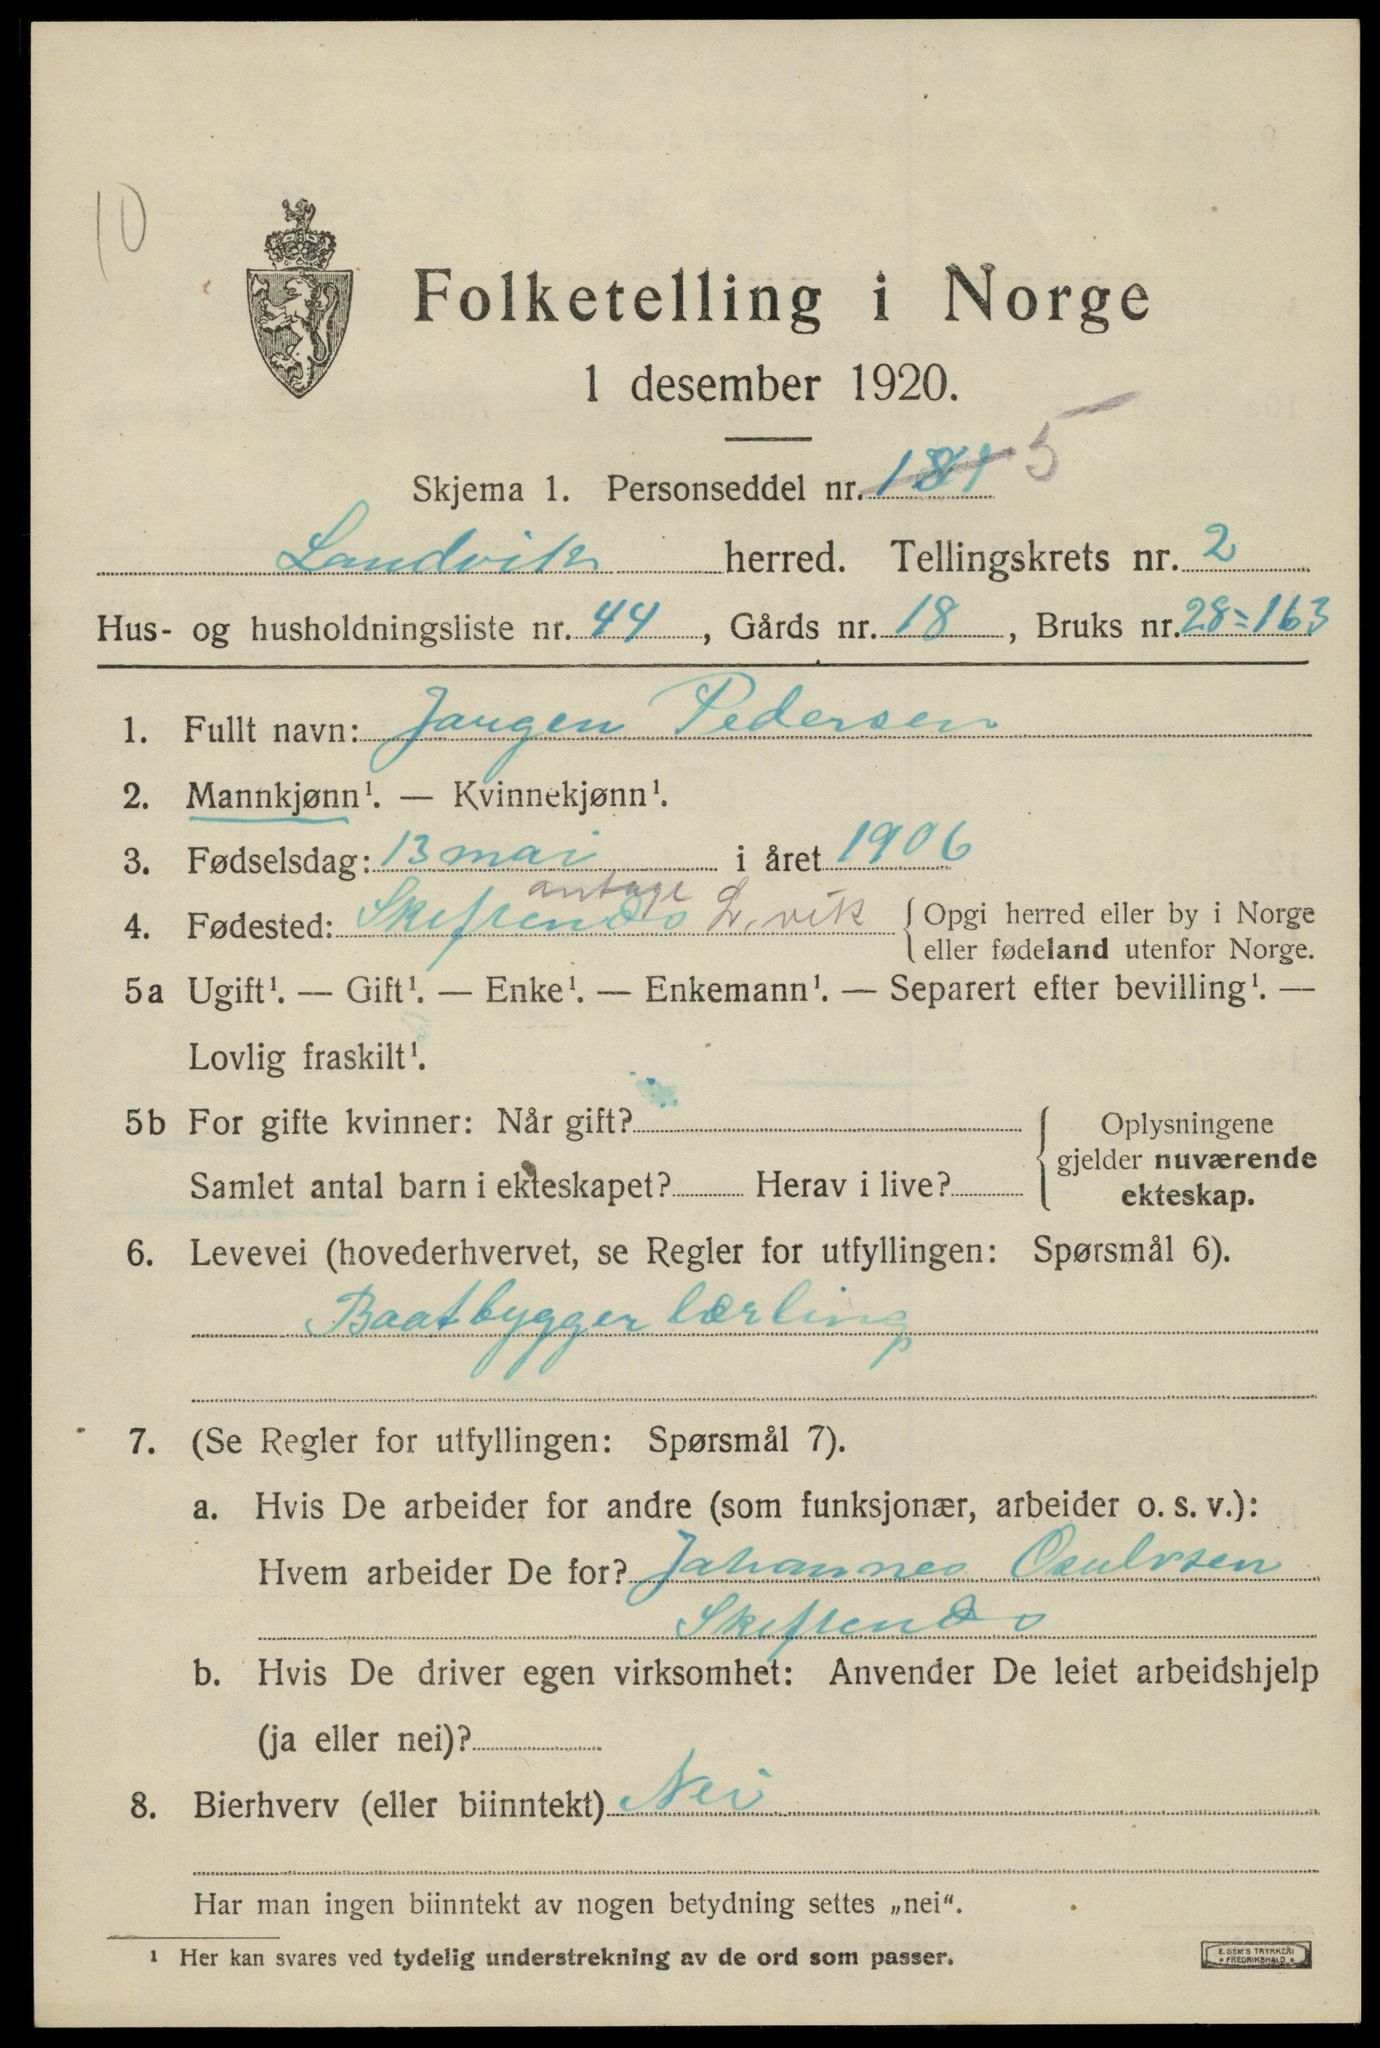 10
Folketelling i Norge
1 desember 1920.
Skjema 1. Personseddel nr. 5
Landvik herred. Tellingskrets nr. 2
Hus- og husholdningsliste nr. 44, Gårds nr. 18, Bruks nr. 28=163
1. Fullt navn: Jørgen Pedersen
2. Mannkjønn¹. — Kvinnekjønn¹.
3. Fødselsdag: 13 mai i året 1906
antage
4. Fødested: L.vik { Opgi herred eller by i Norge
eller fødeland utenfor Norge.
5a Ugift¹. — Gift¹. — Enke¹. — Enkemann¹. — Separert efter bevilling¹. —
Lovlig fraskilt¹.
5b For gifte kvinner: Når gift? { Oplysningene
gjelder nuværende
Samlet antal barn i ekteskapet? Herav i live? ekteskap.
6. Levevei (hovederhvervet, se Regler for utfyllingen: Spørsmål 6).
Baatbygger lærling
7. (Se Regler for utfyllingen: Spørsmål 7).
a. Hvis De arbeider for andre (som funksjonær, arbeider o. s. v.):
Hvem arbeider De for? Johannes Osulvsen
b. Hvis De driver egen virksomhet: Anvender De leiet arbeidshjelp
(ja eller nei)?
8. Bierhverv (eller biinntekt) Nei
Har man ingen biinntekt av nogen betydning settes „nei“.
¹ Her kan svares ved tydelig understrekning av de ord som passer.
E. SEM'S TRYKKERI
FREDRIKSHALD